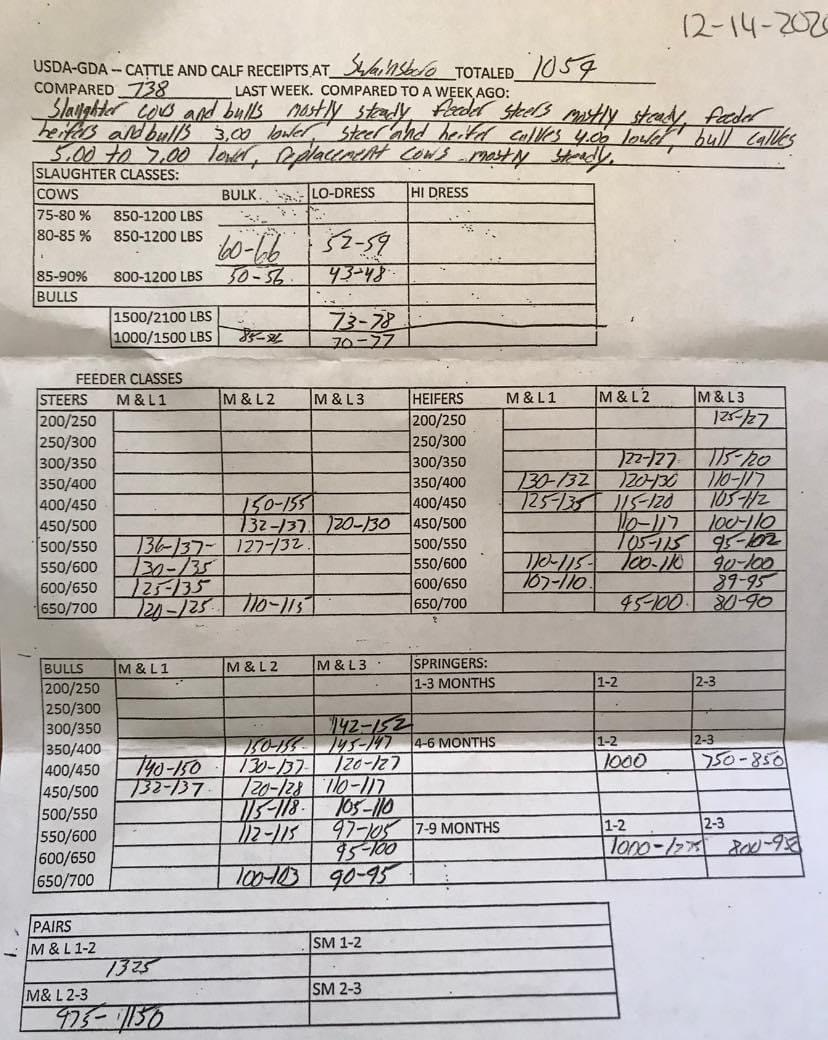 12-14-2020
USDA-GDA – CATTLE AND CALF RECEIPTS AT Swainsboro TOTALED 1054
COMPARED 738 LAST WEEK. COMPARED TO A WEEK AGO:
Slaughter cows and bulls mostly steady, feeder steers mostly steady, feeder
heifers and bulls 3.00 lower, steer and heifer calves 4.00 lower, bull calves
5.00 to 7.00 lower, replacement cows mostly steady.
SLAUGHTER CLASSES:
COWS BULK LO-DRESS HI DRESS
75-80 % 850-1200 LBS
80-85 % 850-1200 LBS 60-66 52-59
85-90% 800-1200 LBS 50-56 43-48
BULLS
1500/2100 LBS 73-78
1000/1500 LBS 70-77
FEEDER CLASSES
STEERS M & L 1 M & L 2 M & L 3 HEIFERS M & L 1 M & L 2 M & L 3
200/250 200/250 125-127
250/300 250/300
300/350 300/350 122-127 115-120
350/400 350/400 130-132 120-130 110-117
400/450 150-155 400/450 125-135 115-120 105-112
450/500 132-137 120-130 450/500 110-117 100-110
500/550 136-137 127-132 500/550 105-115 95-102
550/600 130-135 550/600 110-115 100-110 90-100
600/650 125-135 600/650 107-110 89-95
650/700 120-125 110-115 650/700 95-100 80-90
BULLS M & L 1 M & L 2 M & L 3 SPRINGERS:
200/250 1-3 MONTHS 1-2 2-3
250/300
300/350 142-152
350/400 150-155 145-147 4-6 MONTHS 1-2 2-3
400/450 140-150 130-137 120-127 1000 750-850
450/500 132-137 120-128 110-117
500/550 115-118 105-110
550/600 112-115 97-105 7-9 MONTHS 1-2 2-3
600/650 95-100 1000-1275 800-950
650/700 100-103 90-95
PAIRS
M & L 1-2 SM 1-2
1325
M& L 2-3 SM 2-3
975-1150